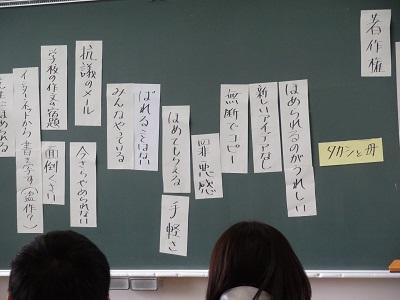 著作権
タカシと母
ほめられるのがうれしい
新しいアイデアなし
無断でコピー
罪悪感
ほめてもらえる
手軽さ
ばれることはない
みんなやっている
抗議のメール
今さらやめられない
学校の作文の宿題
面倒くさい
インターネットから書き写す(盗作?)
先生にほめられる